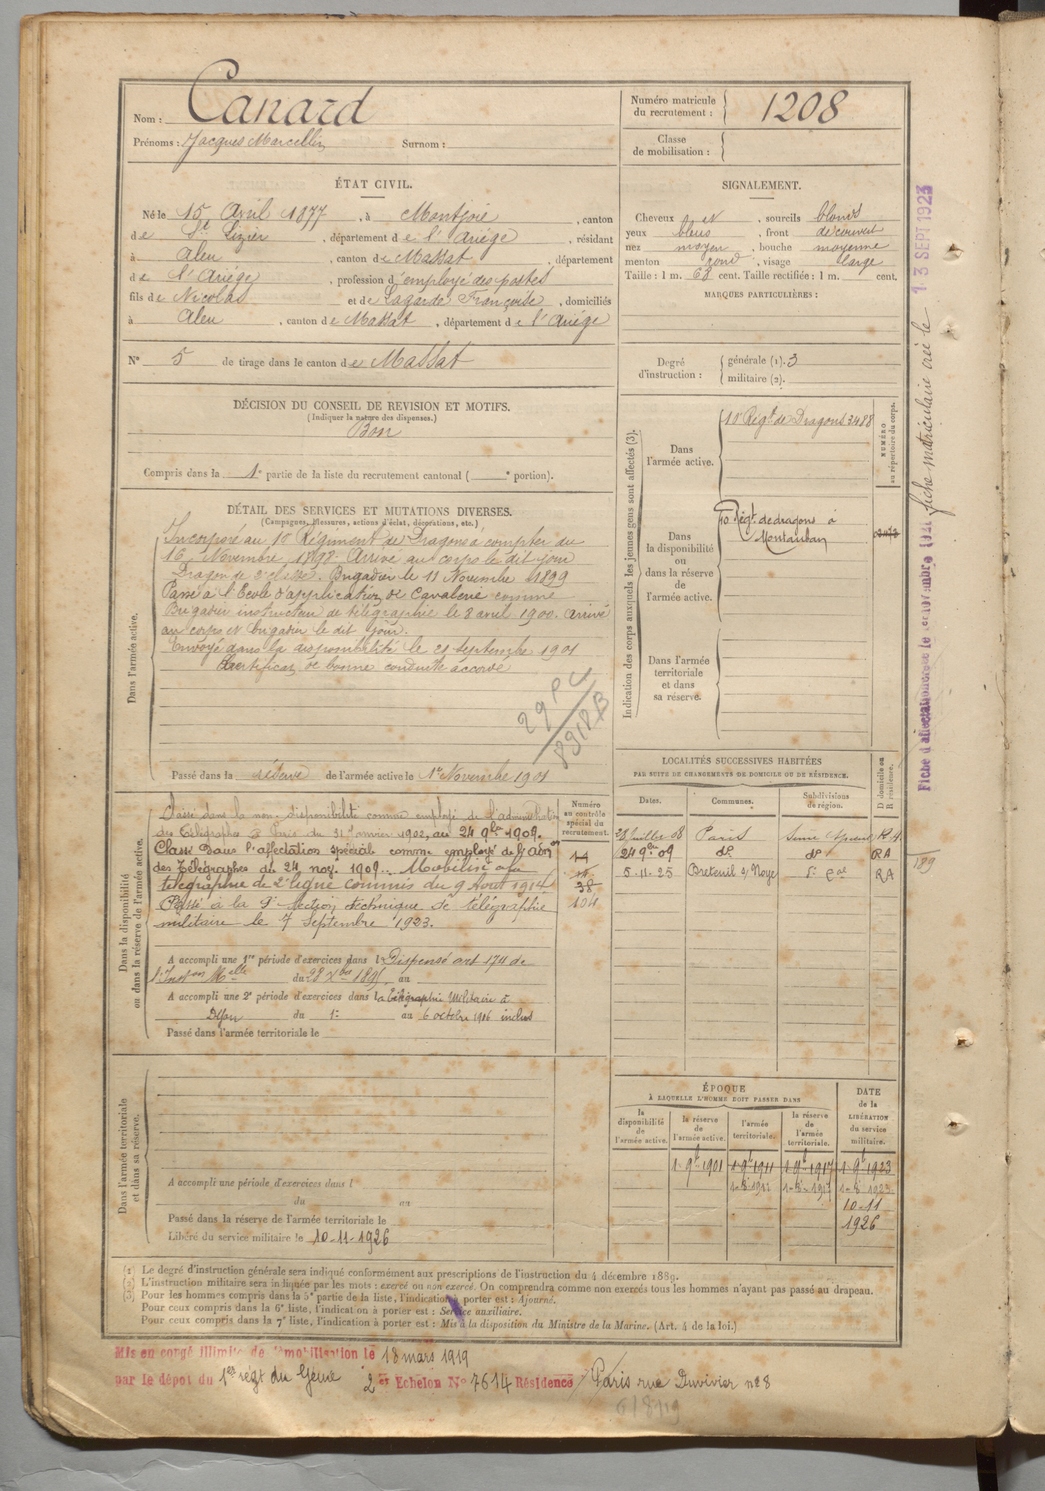 Nom : Canard
Prénoms : Jacques Marcellin Surnom :
Numéro matricule du recrutement : 1208
Classe de mobilisation :
ÉTAT CIVIL.
Né le 15 Avril 1877, à Montjoie, canton
de St Lizier, département de l'Ariège, résidant
à Aleu, canton de Massat, département
de l'Ariège, profession d'employé des postes
fils de Nicolas et de Lagarde Françoise, domiciliés
à Aleu, canton de Massat, département de l'Ariège
N° 5 de tirage dans le canton de Massat
SIGNALEMENT.
Cheveux et, sourcils blonds
yeux bleus, front découvert
nez moyen, bouche moyenne
menton rond, visage large
Taille : 1 m. 68 cent. Taille rectifiée : 1 m. cent.
MARQUES PARTICULIÈRES :
Degré d'instruction : générale (1). 3
militaire (2).
DÉCISION DU CONSEIL DE REVISION ET MOTIFS.
(Indiquer la nature des dispenses.)
Bon
Compris dans la 1e partie de la liste du recrutement cantonal ( e portion).
DÉTAIL DES SERVICES ET MUTATIONS DIVERSES.
(Campagnes, blessures, actions d'éclat, décorations, etc.)
Dans l'armée active.
Incorporé au 10e Régiment de Dragons à compter du
16 Novembre 1898. Arrivé au corps le dit jour
Dragon de 2e classe. Brigadier le 11 Novembre 1899
Passé à l'Ecole d'application de Cavalerie comme
Brigadier instructeur de télégraphie le 2 avril 1900. Arrivé
au corps et brigadier le dit jour.
Envoyé dans la disponibilité le 21 Septembre 1901
Certificat de bonne conduite accordé
29 PC
8918 B
Passé dans la réserve de l'armée active le 1er Novembre 1901
Indication des corps auxquels les jeunes gens sont affectés (3).
NUMÉRO au répertoire du corps.
Dans l'armée active.
10e Régt de Dragons 3488
Dans la disponibilité ou dans la réserve de l'armée active.
10e Régt de dragons à
Montauban
Dans l'armée territoriale et dans sa réserve.
Dans la disponibilité ou dans la réserve de l'armée active.
Numéro au contrôle spécial du recrutement.
Classé dans la non-disponibilité comme employé de l'administration
des télégraphes à Paris du 31 Janvier 1902, au 24 9bre 1909.
Classé dans l'affectation spéciale comme employé de l'adon
des Télégraphes du 24 nov. 1909. Mobilisé à la
télégraphie de 2e ligne commis du 9 Août 1914
Passé à la 9e Section technique de télégraphie
militaire le 7 Septembre 1923.
14
38
104
A accompli une 1re période d'exercices dans l Dispensé art 174 de
l'Inston Melle du 28 Xbre 1895 au
A accompli une 2e période d'exercices dans la télégraphie Militaire à
Dijon du 1er au 6 octobre 1906 inclus
Passé dans l'armée territoriale le
LOCALITÉS SUCCESSIVES HABITÉES
PAR SUITE DE CHANGEMENTS DE DOMICILE OU DE RÉSIDENCE.
Dates. Communes. Subdivisions de région. D domicile ou R résidence.
23 Juillet 08 Paris Seine R.A.
24 9bre 09 do do RA
5-11-25 Breteuil s/ Noye RA
Dans l'armée territoriale et dans sa réserve.
A accompli une période d'exercices dans l
du au
Passé dans la réserve de l'armée territoriale le
Libéré du service militaire le 10-11-1926
ÉPOQUE
À LAQUELLE L'HOMME DOIT PASSER DANS
la disponibilité de l'armée active. la réserve de l'armée active. l'armée territoriale. la réserve de l'armée territoriale. DATE de la LIBÉRATION du service militaire.
1-9b 1901 1-9b 1911 1-9b 1917 1-9b 1923
10-11
1926
(1) Le degré d'instruction générale sera indiqué conformément aux prescriptions de l'instruction du 4 décembre 1889.
(2) L'instruction militaire sera indiquée par les mots : exercé ou non exercé. On comprendra comme non exercés tous les hommes n'ayant pas passé au drapeau.
(3) Pour les hommes compris dans la 5e partie de la liste, l'indication à porter est : Ajourné.
Pour ceux compris dans la 6e liste, l'indication à porter est : Service auxiliaire.
Pour ceux compris dans la 7e liste, l'indication à porter est : Mis à la disposition du Ministre de la Marine. (Art. 4 de la loi.)
Mis en congé illimité de démobilisation le 18 mars 1919
par le dépôt du 1er régt du Génie 2e Echelon N° 7614 Résidence Paris rue Duvivier n° 8
fiche matriculaire créée le 13 SEPT 1923
Fiche d'affectation